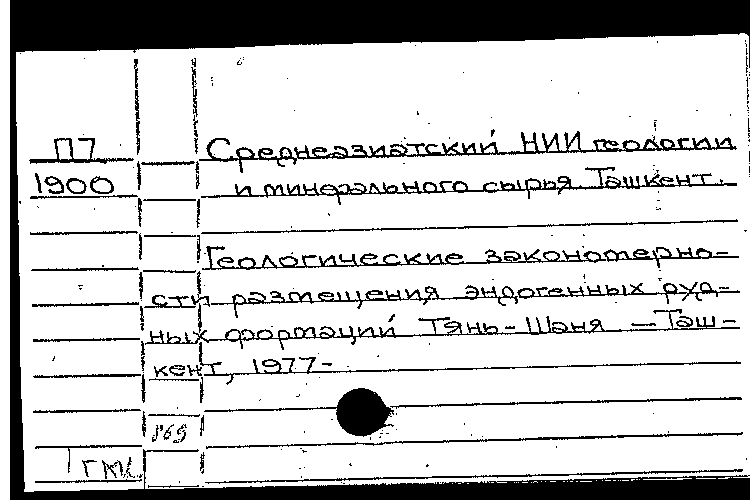 П7
1900
Среднеазиатский НИИ геологии
и минерального сырья. Ташкент.
Геологические закономерно-
сти размещения эндогенных руд-
ных формаций Тянь-Шаня — Таш-
кент, 1977-
869